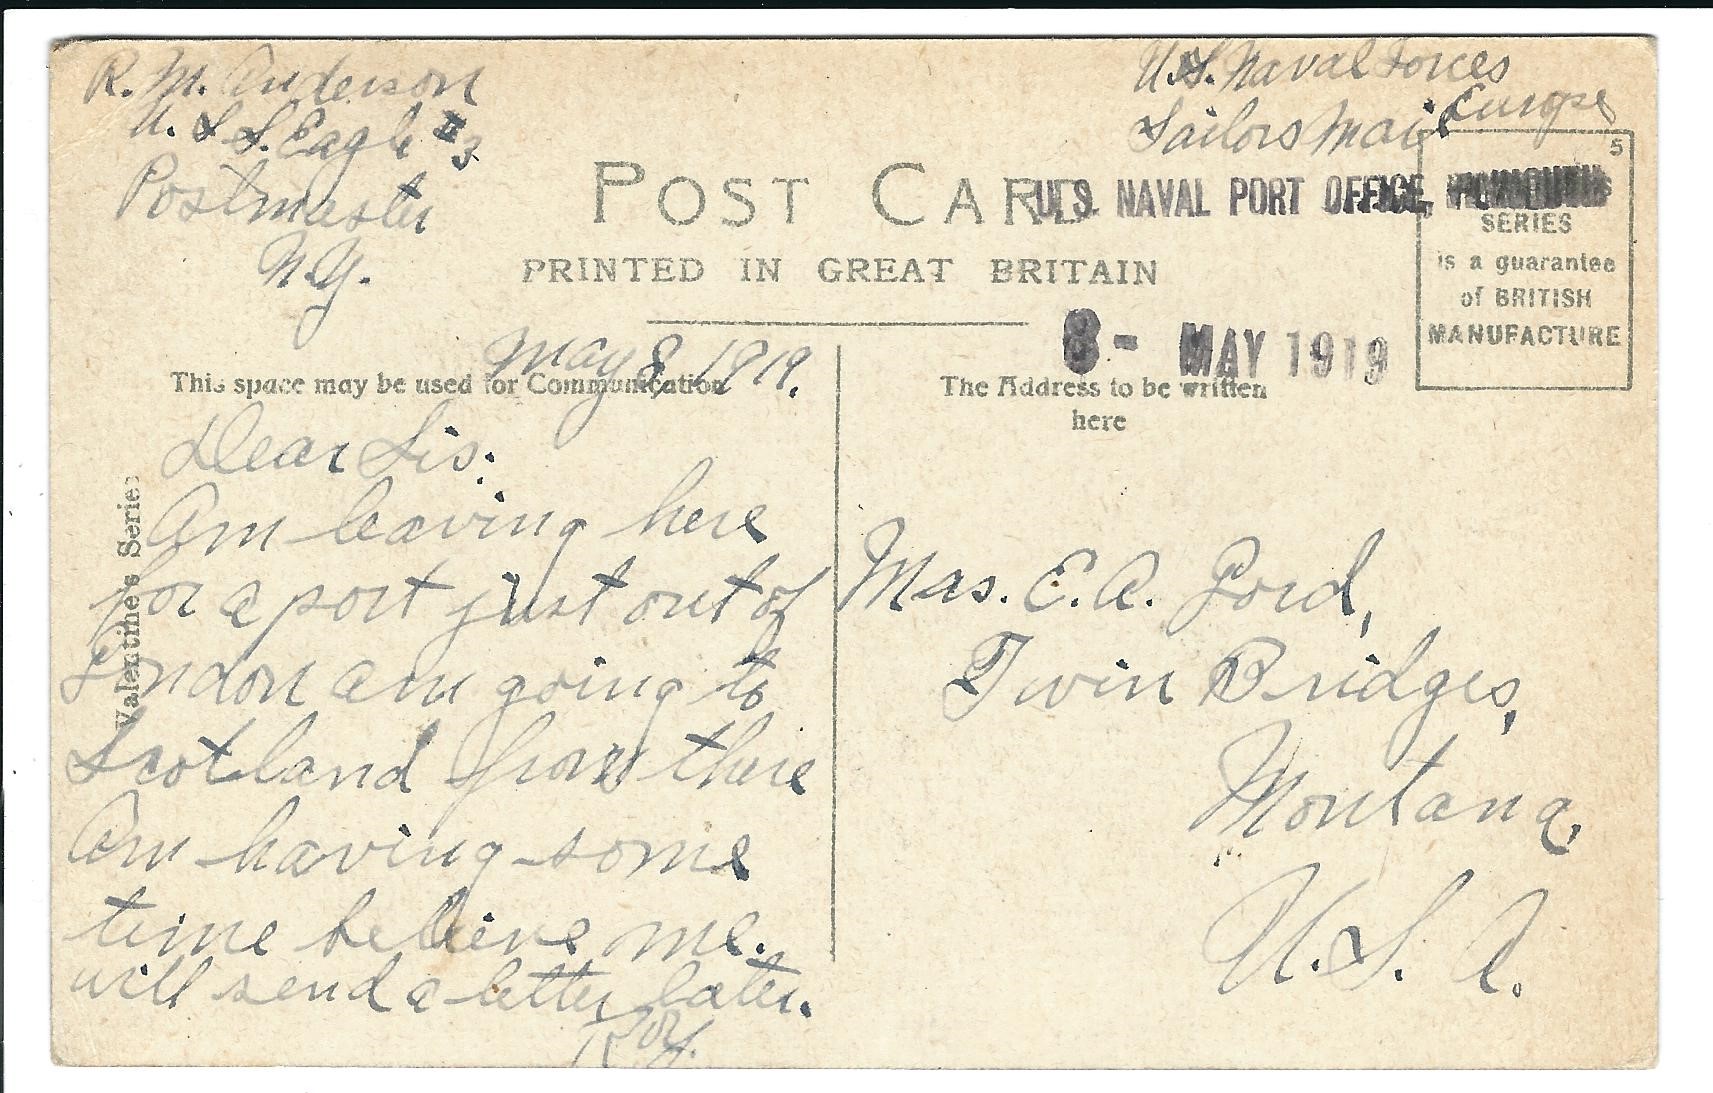 R. M. Anderson
U.S.S. Eagle #3
Postmaster
N.Y.
U.S. Naval Forces
Europe
Sailors Mail
POST CARD
PRINTED IN GREAT BRITAIN
U.S. NAVAL PORT OFFICE,
8 - MAY 1919
5
SERIES
is a guarantee
of BRITISH
MANUFACTURE
This space may be used for Communication
The Address to be written
here
Valentine's Series
May 8, 1919.
Dear Sis:
Am leaving here
for a port just out of
London am going to
Scotland from there
Am having some
time believe me.
will send a letter later.
Roy.
Mrs. E. A. Ford,
Twin Bridges,
Montana,
U. S. A.